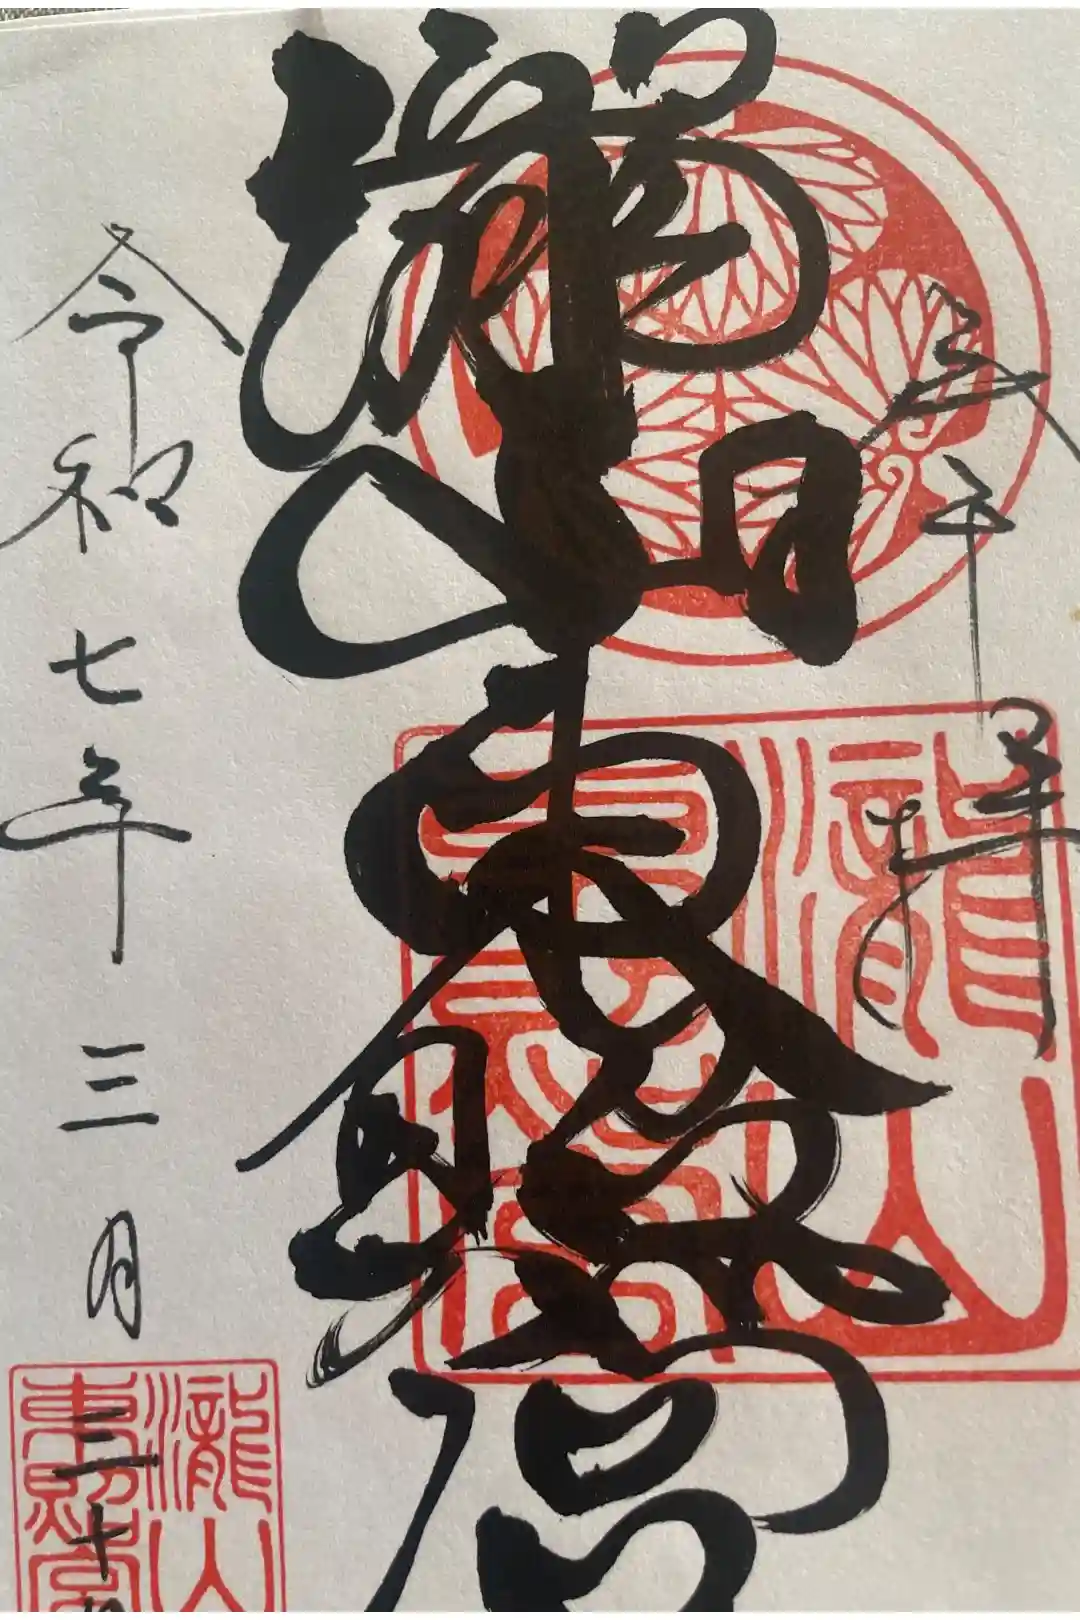 奉拝
瀧山東照宮
瀧山
東照宮
令和七年三月三十
瀧山
東照宮